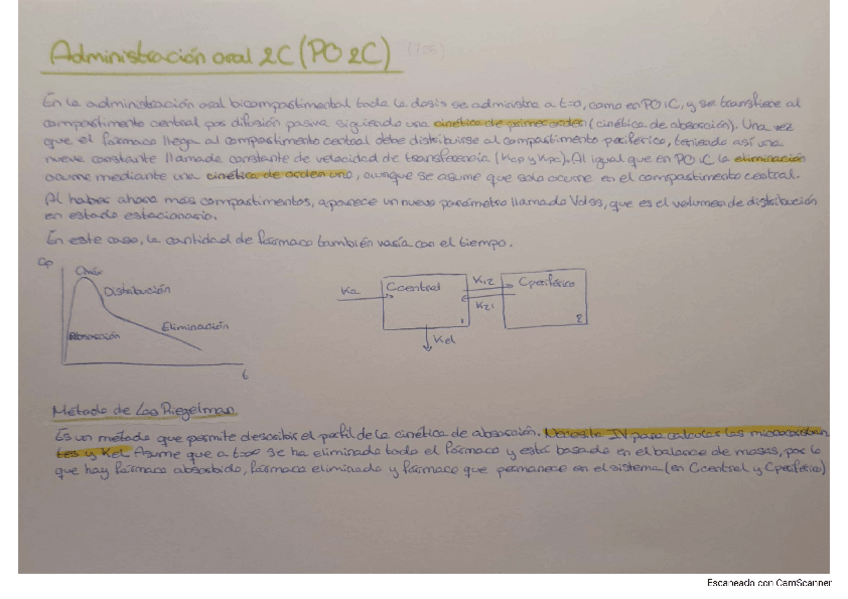 Administración oral 2C (PO 2C)
En la administración oral bicompartimental toda la dosis se administra a t=0, como en PO1C, y se transfiere al
compartimento central por difusión pasiva siguiendo una cinética de primer orden (cinética de absorción). Una vez
que el fármaco llega al compartimento central debe distribuirse al compartimento periférico, teniendo así una
nueva constante llamada constante de velocidad de transferencia (Kcp y Kpc). Al igual que en PO1C la eliminación
ocurre mediante una cinética de orden uno, aunque se asume que solo ocurre en el compartimento central.
Al haber ahora más compartimentos, aparece un nuevo parámetro llamado Vdss, que es el volumen de distribución
en estado estacionario.
En este caso, la cantidad de fármaco también varía con el tiempo.
Cp
Cmáx
Distribución
Eliminación
Absorción
t
Ka
Ccentral
1
K12
K21
Cperiférico
2
Kel
Método de Loo Riegelman
Es un método que permite describir el perfil de la cinética de absorción. Necesita IV para calcular las microconstan
tes y Kel. Asume que a t=∞ se ha eliminado todo el fármaco y está basado en el balance de masas, por lo
que hay fármaco absorbido, fármaco eliminado y fármaco que permanece en el sistema (en Ccentral y Cperiférico)
Escaneado con CamScanner